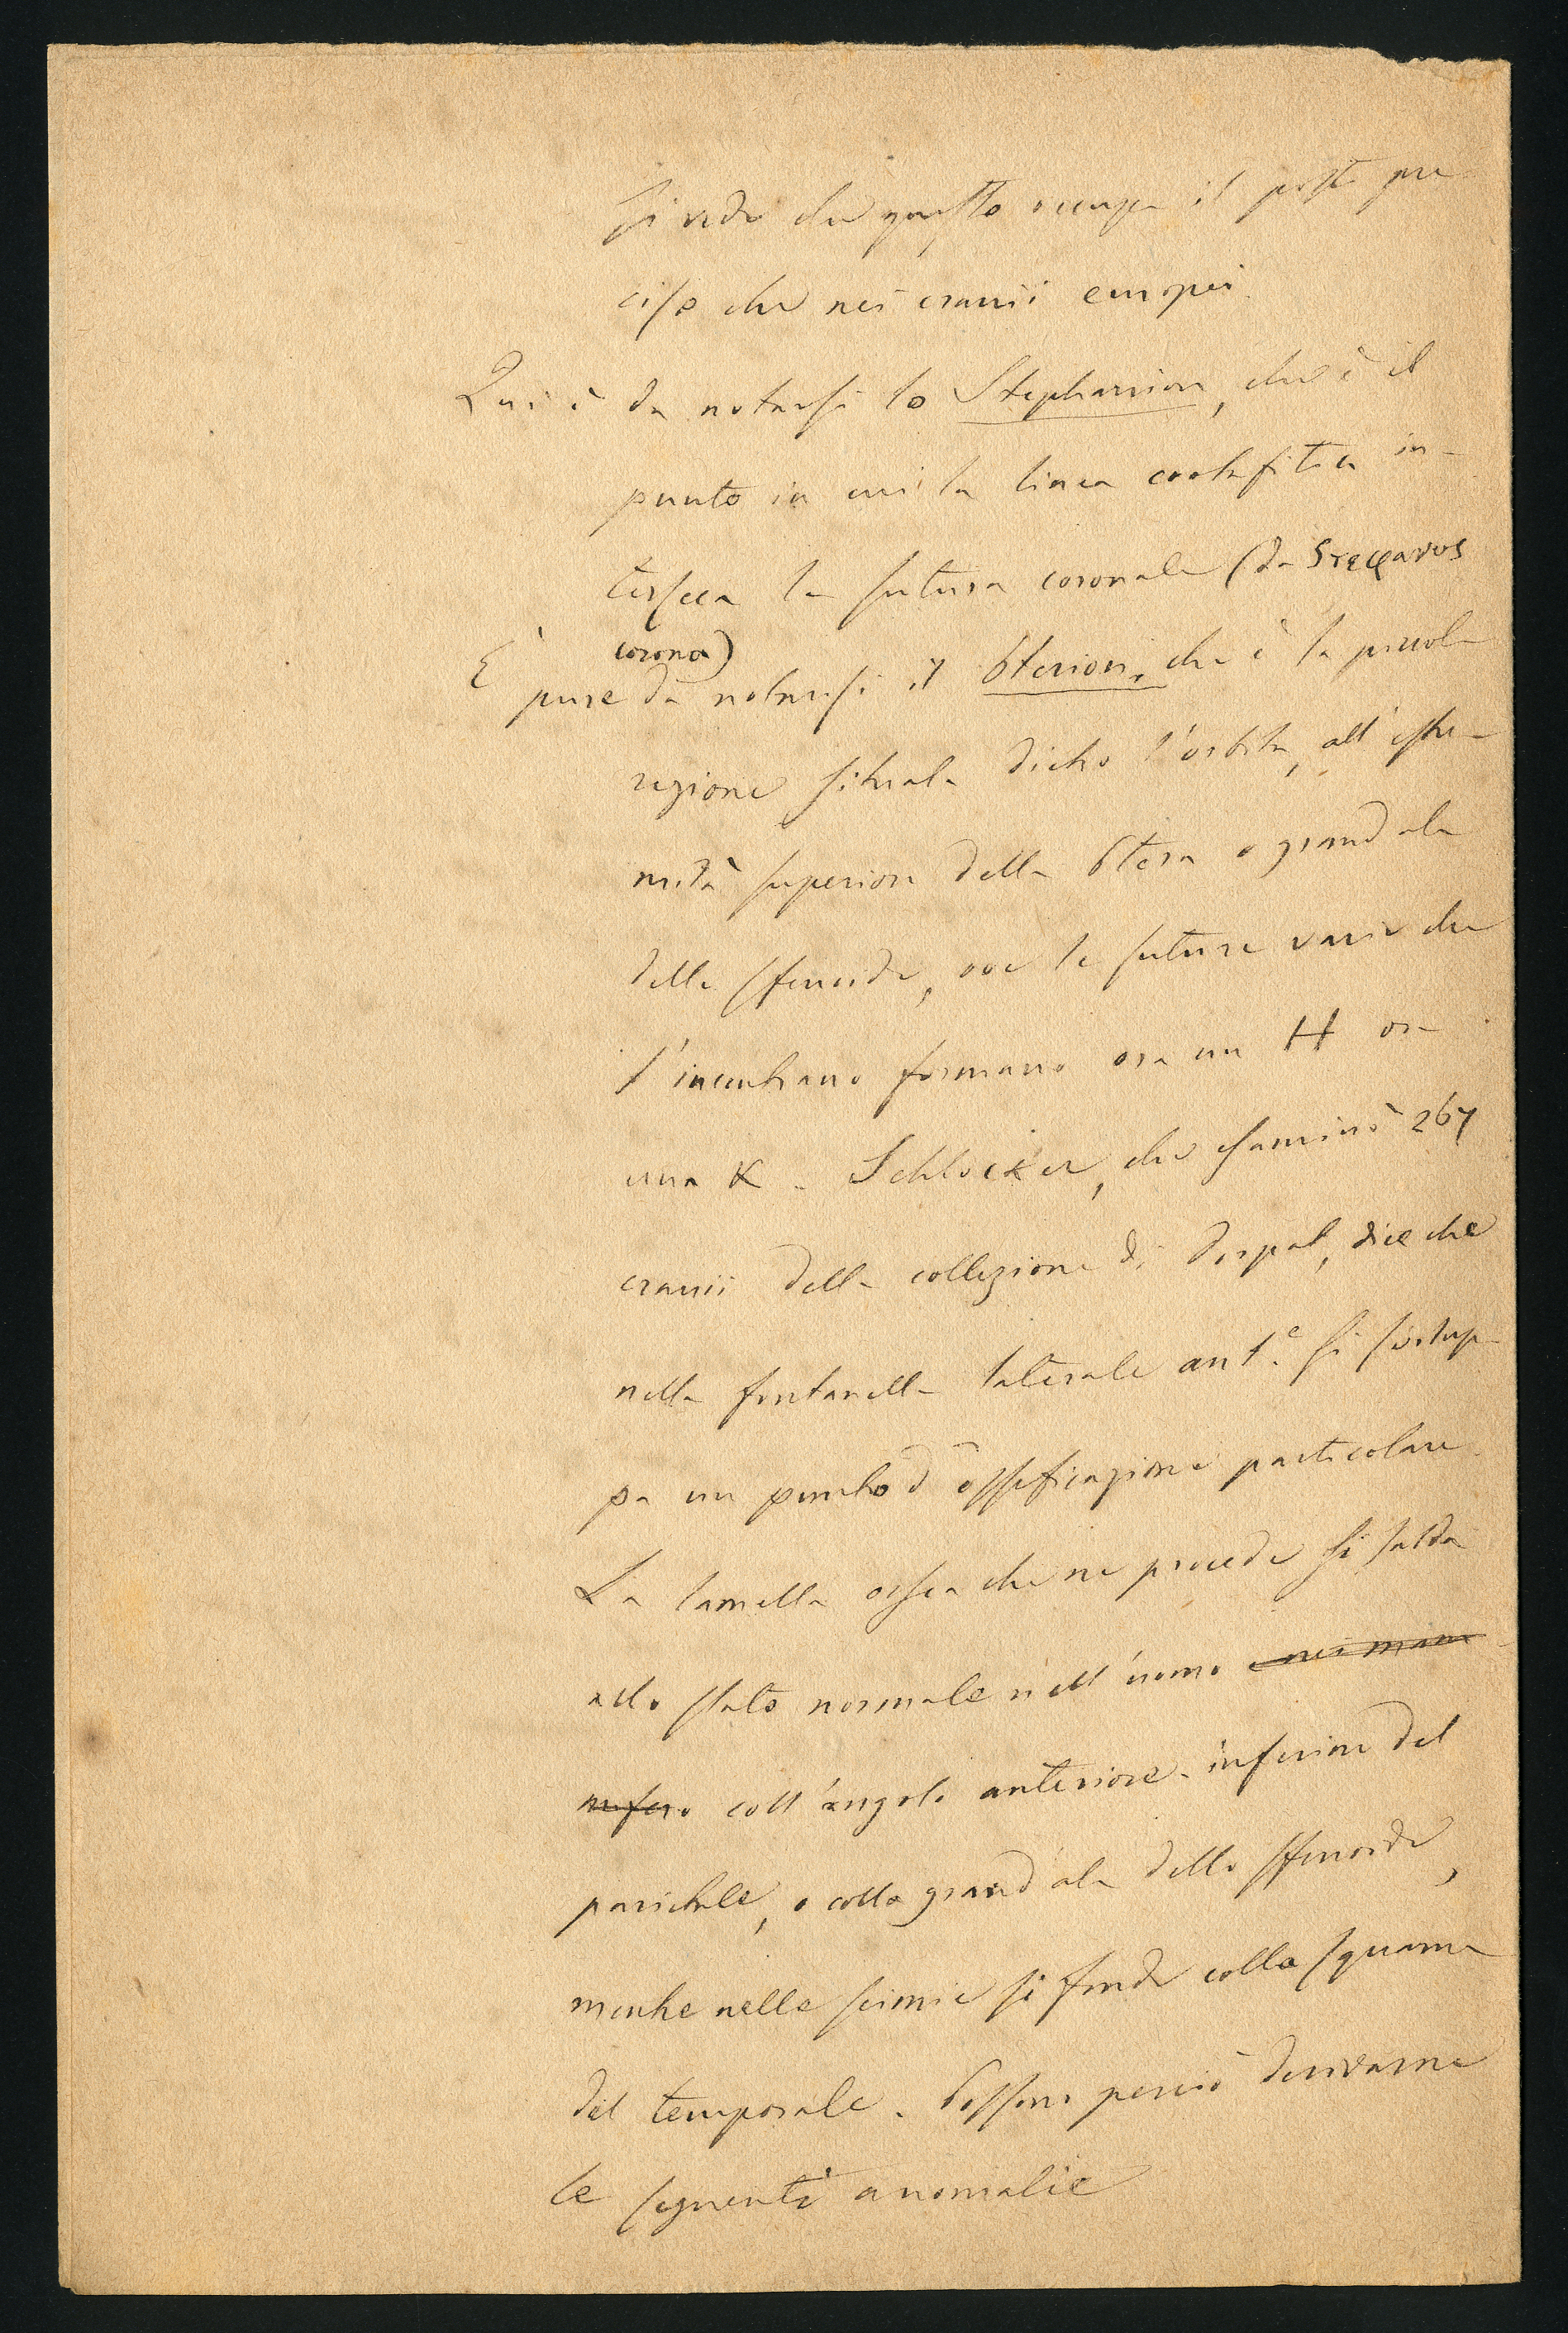 si vede che questo occupa il posto pre
ciso che nei cranii europei.
Qui è da notarsi lo Stephanion, che è il
punto in cui la linea crotafitica in-
terseca la sutura coronale (da Στεφανος
corona)
È pure da notarsi il Pterion, che è la piccola
regione situata dietro l'orbita, all'estre-
mità superiore della Ptera o grand'ala
dello sfenoide, ove le suture varie che
s'incontrano formano ora un H ora
una K. Schlocker, che esaminò 267
cranii della collezione di Dorpat, dice che
nella fontanella laterale ant.e si svilup-
pa un punto d'ossificazione particolare.
La lamella ossea che ne procede si salda
allo stato normale nell'uomo e nei mam
miferi coll'angolo anteriore-inferiore del
parietale, o colla grand'ala dello sfenoide,
mentre nelle scimie si fonde colla squama
del temporale. Possono perciò derivarne
le seguenti anomalie